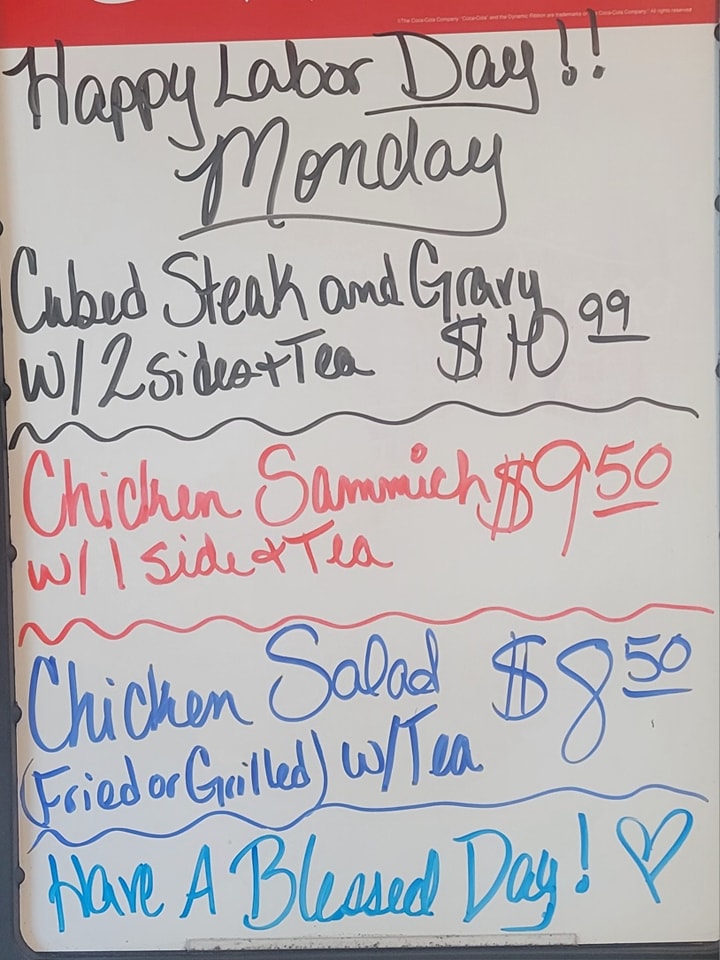 ©The Coca-Cola Company. "Coca-Cola" and the Dynamic Ribbon are trademarks of The Coca-Cola Company. All rights reserved
Happy Labor Day!!
Monday
Cubed Steak and Gravy
w/ 2 sides + Tea $10 99
Chicken Sammich $9 50
w/ 1 side & Tea
Chicken Salad $8 50
(Fried or Grilled) w/ Tea
Have A Blessed Day! ♡